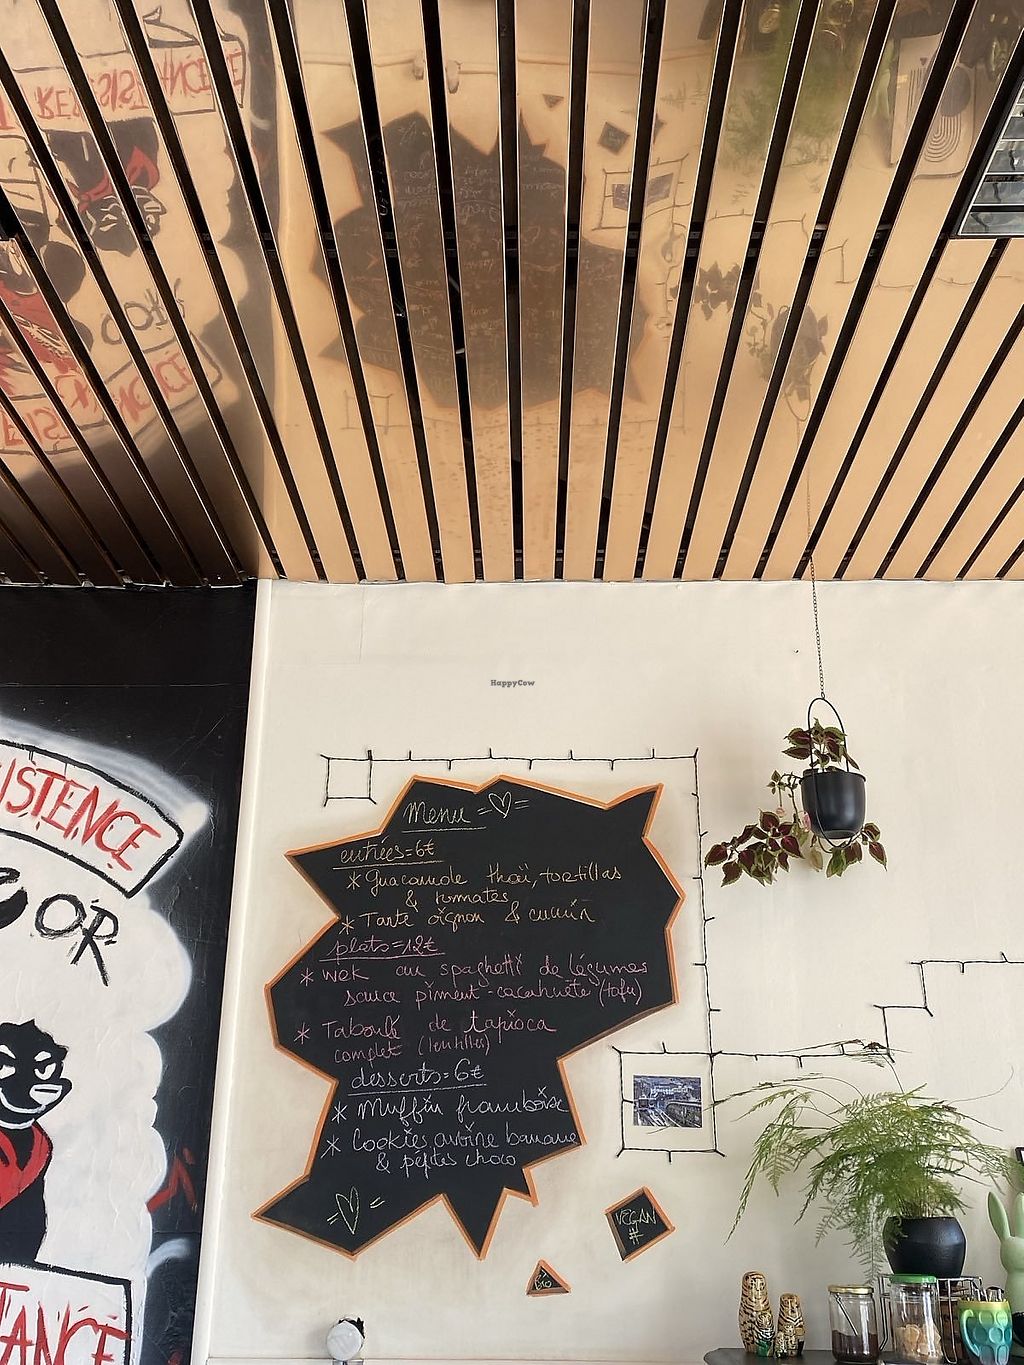 HappyCow
Menu
entrées=6€
* Guacamole thaï, tortillas
& tomates
* Tarte oignon & cumin
plats=12€
* wok au spaghetti de légumes
sauce piment-cacahuète (tofu)
* Taboulé de tapioca
complet (lentilles)
desserts=6€
* Muffin framboise
* Cookies avoine banane
& pépites choco
VEGAN
#
Bio
ISTENCE
OR
TANCE